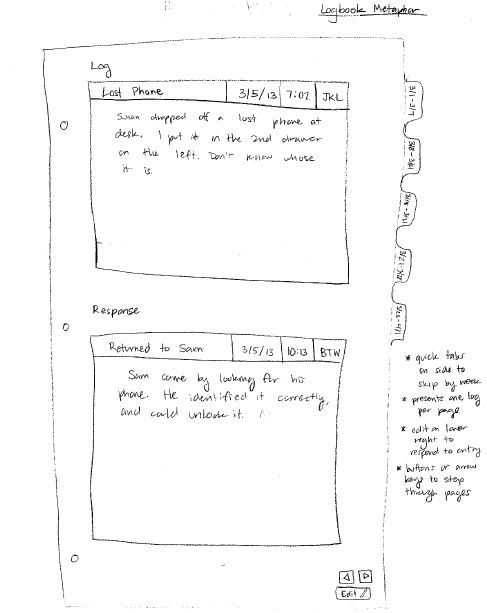 Logbook Metaphor
Log
Lost Phone 3/5/13 7:02 JKL
Susan dropped off a lost phone at
desk. I put it in the 2nd drawer
on the left. Don't know whose
it is.
Response
Returned to Sam 3/5/13 10:13 BTW
Sam came by looking for his
phone. He identified it correctly,
and could unlock it.
* quick tabs
on side to
skip by week
* presents one log
per page
* edit on lower
right to
respond to entry
* buttons or arrow
keys to step
through pages
Edit